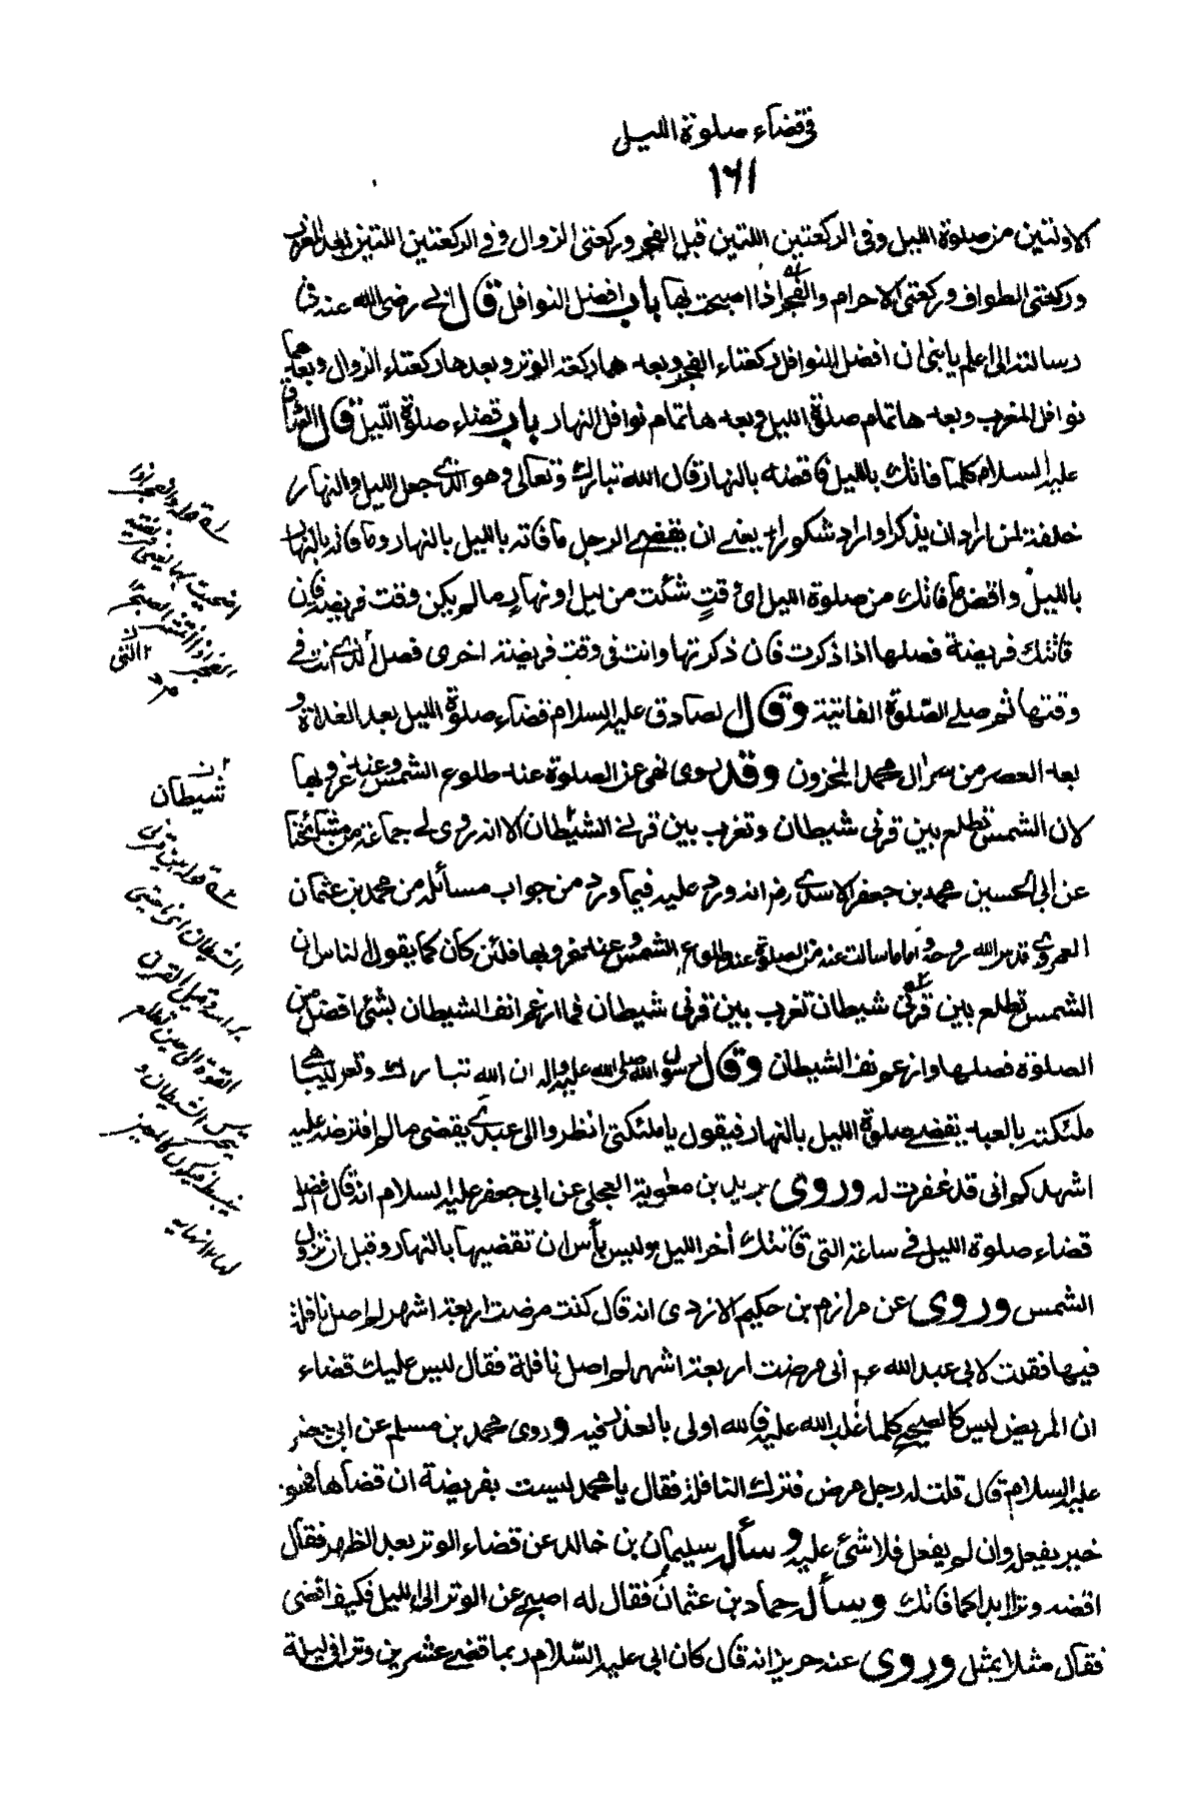 في قضاء صلوة الليل
١٦١
الاولتين من صلوة الليل وفي الركعتين اللتين قبل الفجر وركعتي الزوال وفي الركعتين اللتين بعد المغرب
وركعتي الطواف وركعتي الاحرام والفجر اذا اصبحت بها باب افضل النوافل قال ابي رضي الله عنه في
رسالته الي اعلم يا بني ان افضل النوافل ركعتاء الفجر وبعدهما ركعة الوتر وبعدها ركعتاء الزوال وبعدهما
نوافل المغرب وبعدها تمام صلوة الليل وبعدها تمام نوافل النهار باب قضاء صلوة الليل قال الصادق
عليه السلام كلما فاتك بالليل فاقضه بالنهار قال الله تبارك وتعالى وهو الذي جعل الليل والنهار
خلفة لمن اراد ان يذكر او اراد شكورا يعني ان يقضي الرجل ما فاته بالليل بالنهار وما فاته بالنهار
بالليل واقض ما فاتك من صلوة الليل اي وقت شئت من ليل او نهار ما لم يكن وقت فريضة فان
فاتتك فريضة فصلها اذا ذكرت فان ذكرتها وانت في وقت فريضة اخرى فصل التي انت في
وقتها ثم صلي الصلوة الفائتة وقال الصادق عليه السلام قضاء صلوة الليل بعد الغداة و
بعد العصر من سر ال محمد المخزون وقد روى نهي عن الصلوة عند طلوع الشمس وعند غروبها
لان الشمس تطلع بين قرني شيطان وتغرب بين قرني الشيطان الا انه روى لي جماعة من مشائخنا
عن ابي الحسين محمد بن جعفر الاسدي رض انه ورد عليه فيما ورد من جواب مسائله من محمد بن عثمان
العمروي قدس الله روحه واما ما سالت عنه من الصلوة عند طلوع الشمس وعند غروبها فلئن كان كما يقول الناس ان
الشمس تطلع بين قرني شيطان تغرب بين قرني شيطان فما ارغم انف الشيطان بشئ افضل من
الصلوة فصلها وارغم انف الشيطان وقال رسول الله صلى الله عليه واله ان الله تبارك وتعالى ليباهي
ملئكته بالعبد يقضي صلوة الليل بالنهار فيقول يا ملئكتي انظروا الى عبدي يقضي ما لم افترضه عليه
اشهدكم اني قد غفرت له وروى بريد بن معوية العجلي عن ابي جعفر عليه السلام انه قال افضل
قضاء صلوة الليل في ساعة التي فاتتك آخر الليل وليس بأس ان تقضيها بالنهار وقبل ان تزول
الشمس وروى عن مرازم بن حكيم الازدي انه قال كنت مرضت اربعة اشهر لم اصل نافلة
فيها فقلت لابي عبد الله عم اني مرضت اربعة اشهر لم اصل نافلة فقال ليس عليك قضاء
ان المريض ليس كالصحيح كلما غلب الله عليه فالله اولى بالعذر فيه وروى محمد بن مسلم عن ابي جعفر
عليه السلام قال قلت له رجل مرض فترك النافلة فقال يا محمد ليست بفريضة ان قضاها فهو
خير يفعله وان لم يفعل فلا شئ عليه وسأل سليمان بن خالد عن قضاء الوتر بعد الظهر فقال
اقضه وترا ابدا كما فاتك وسأل حماد بن عثمان فقال له اصبح عن الوتر الى الليل فكيف اقضي
فقال مثلا بمثل وروى عنه حريز انه قال كان ابي عليه السلام ربما قضى عشرين وترا في ليلة
اصبحت بها يعني
شيطان
قوله بين قرني
الشيطان اي ناحيتي
راسه وقيل القرن
القوة اي حين تطلع
يتحرك الشيطان و
يتسلط فيكون كالمعين
لها نهايه